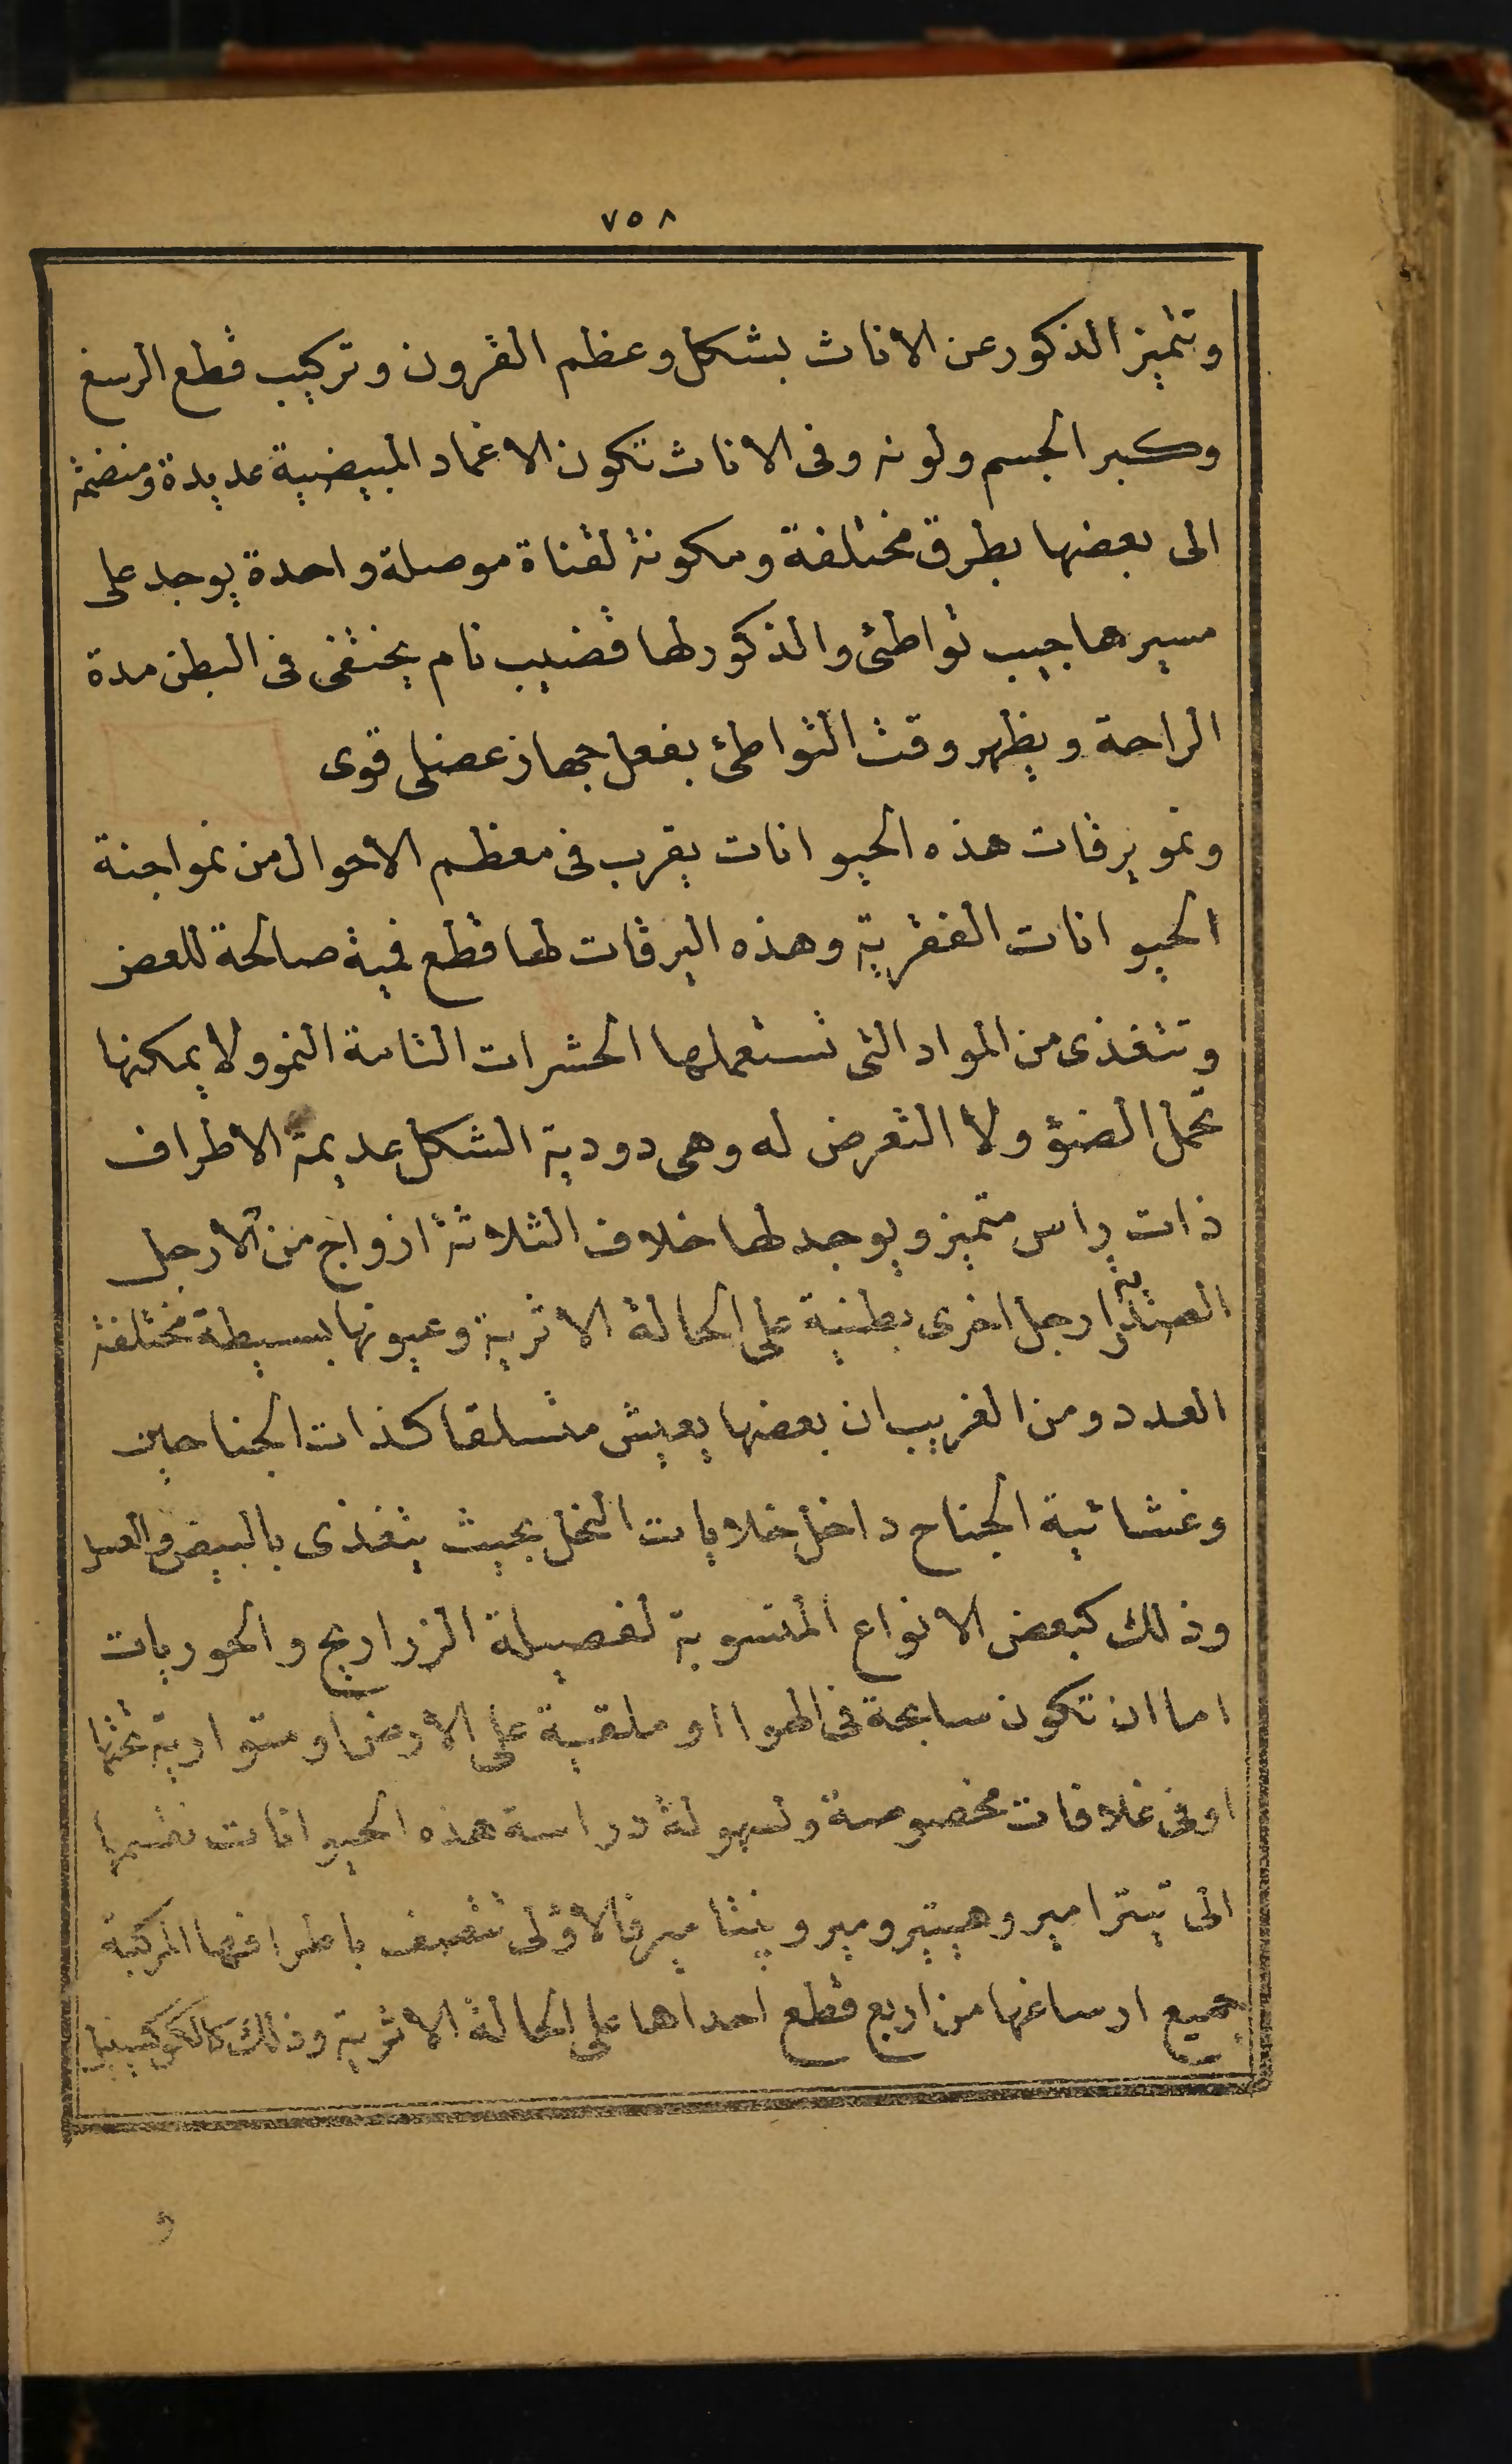 ٧٥٨
وتتميز الذكور عن الاناث بشكل وعظم القرون وتركيب قطع الرسغ
وكبر الجسم ولونه وفى الاناث تكون الاغماد المبيضية عديدة ومنضمة
الى بعضها بطرق مختلفة ومكونة لقناة موصلة واحدة يوجد على
مسيرها جيب تواطئى والذكور لها قضيب تام يختفى فى البطن مدة
الراحة ويظهر وقت التواطئ بفعل جهاز عضلى قوى
ونمو يرقات هذه الحيوانات يقرب فى معظم الاحوال من نمو اجنة
الحيوانات الفقرية وهذه اليرقات لها قطع فمية صالحة للعض
وتتغذى من المواد التى تستعملها الحشرات التامة النمو ولا يمكنها
تحمل الضؤ ولا التعرض له وهى دودية الشكل عديمة الاطراف
ذات راس متميز ويوجد لها خلاف الثلاثة ازواج من الارجل
الصدرية ارجل اخرى بطنية على الحالة الاثرية وعيونها بسيطة مختلفة
العدد ومن الغريب ان بعضها يعيش متسلقا كذات الجناحين
وغشائية الجناح داخل خلايات النحل بحيث يتغذى بالبيض والعسل
وذلك كبعض الانواع المنسوبة لفصيلة الزراريح والحوريات
اما ان تكون سابحة فى الهوا او ملقية على الارض او متوارية تحتها
او فى غلافات مخصوصة ولسهولة دراسة هذه الحيوانات نقسمها
الى تيترامير وهيتيرومير وپنتامير فالاولى تتصف باطرافها المركبة
جميع ارساغها من اربع قطع احداها على الحالة الاثرية وذلك كالكوكسينيل
و